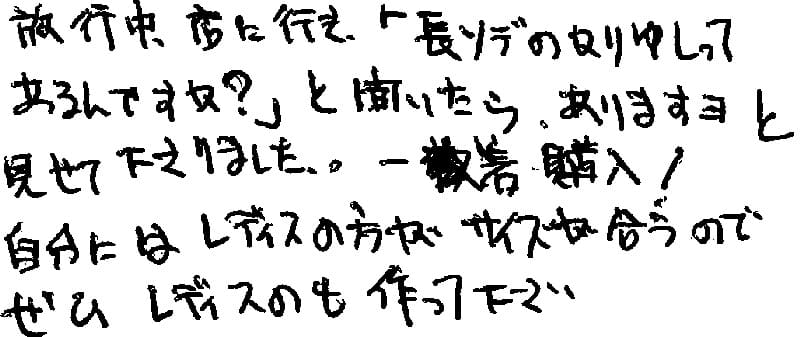 旅行中、店に行き、「長ソデのかりゆしって
あるんですか?」と聞いたら、ありますヨと
見せて下さりました。。一着購入!
自分にはレディスの方がサイズが合うので
ぜひレディスのも作って下さい